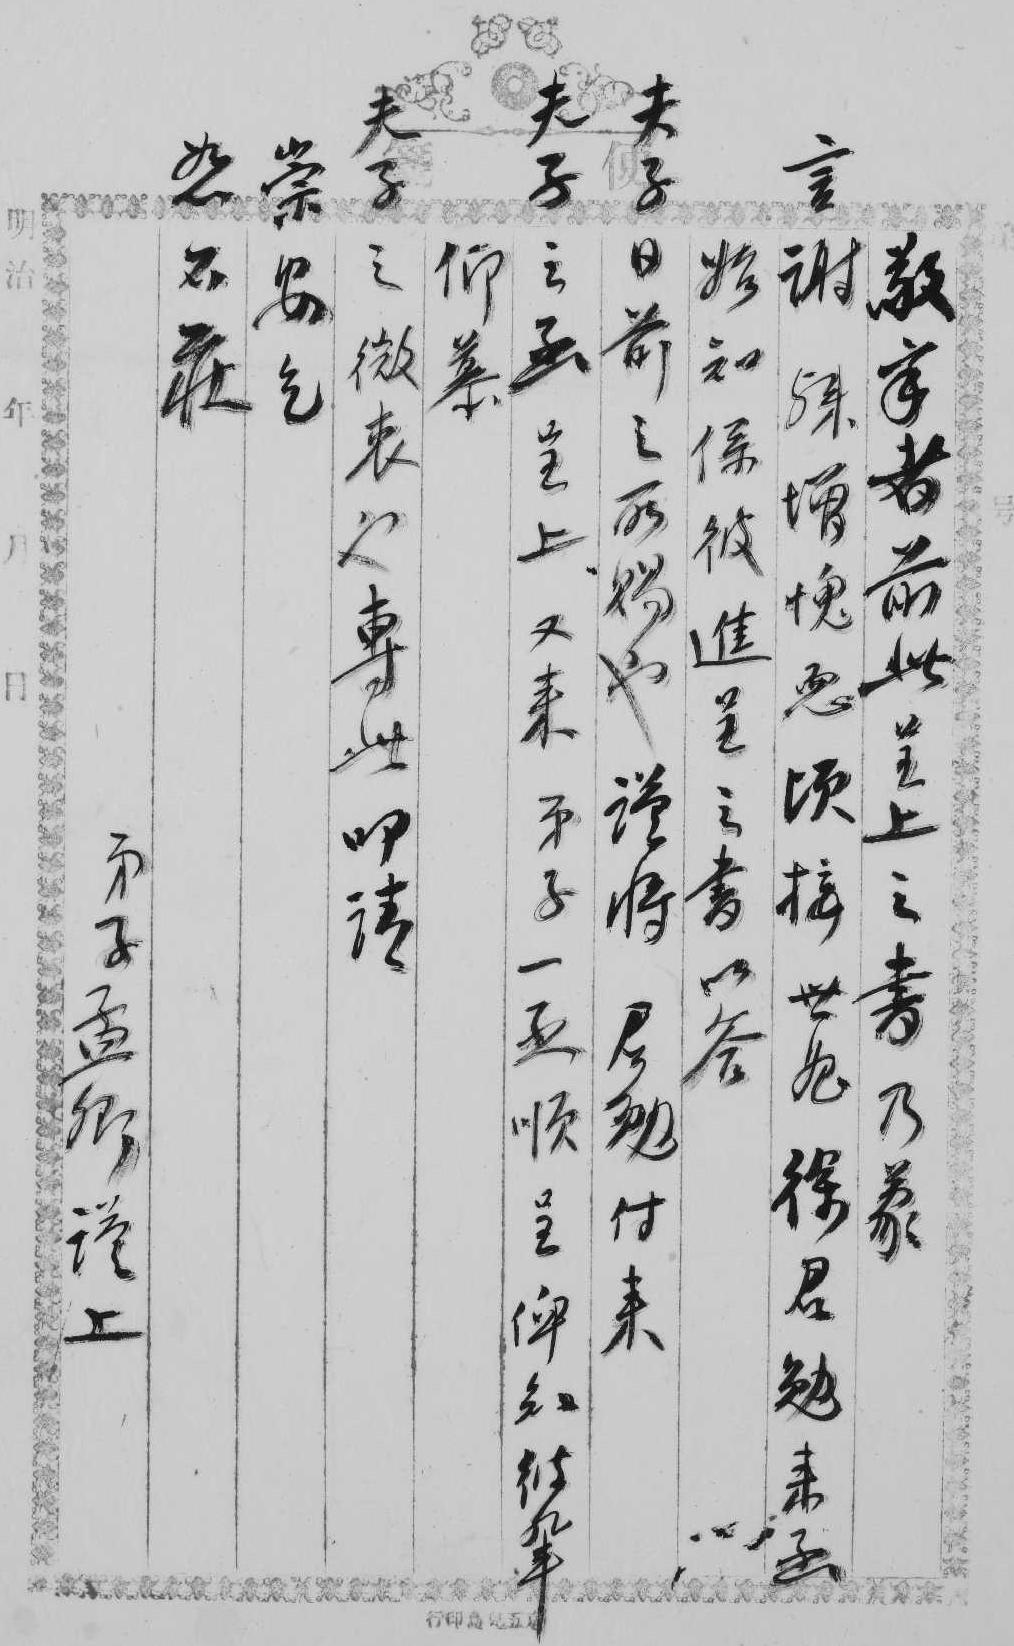 敬禀者前此呈上之書乃蒙
言謝殊增愧恧頃接世兄徐君勉来函
始知係彼進呈之書以答
夫子日前之所賜也謹將君勉付来
夫子之函呈上又来弟子一函順呈俾知彼輩
仰慕
夫子之微衷也專此叩請
崇安乞
恕不莊
弟子孟卿謹上
便箋
明治 年 月 日
号